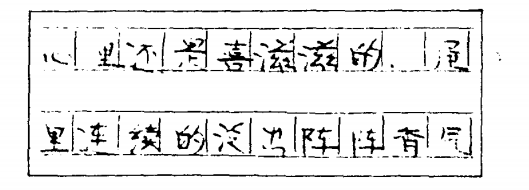 心里还是喜滋滋的.屋
里连续的泛出阵阵香气